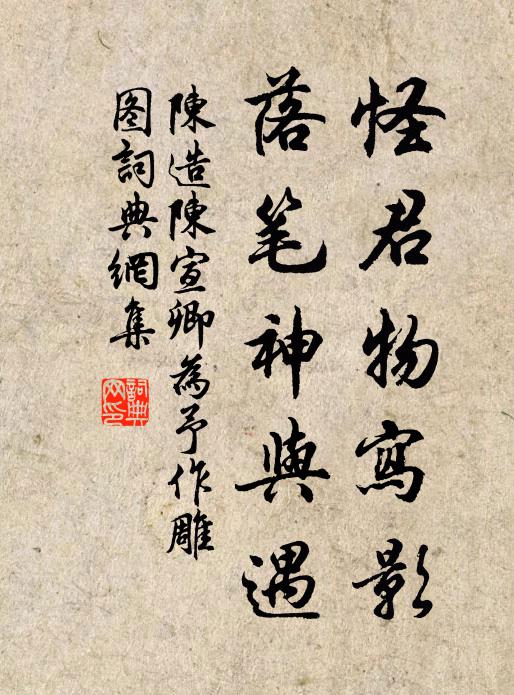 怪君物寫影
落笔神與遇
陳造陳宣卿為予作雕
图詞典網集
詞典网印